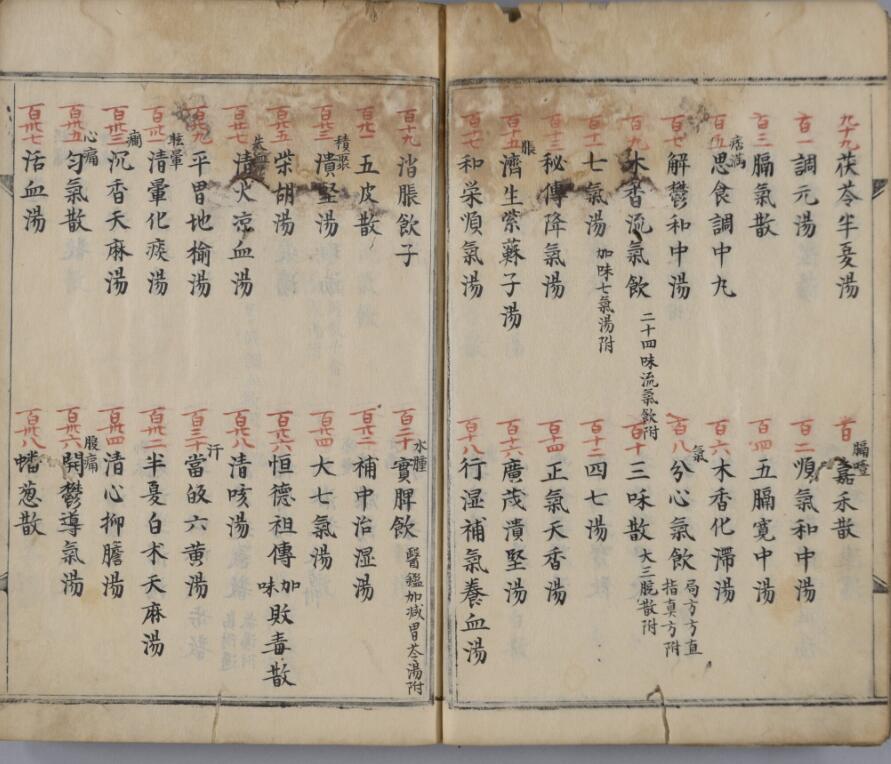 九十九 茯苓半夏湯
膈噎
百 嘉禾散
百一 調元湯
百二 順氣和中湯
百三 膈氣散
百四 五膈寛中湯
痞滿
百五 思食調中丸
百六 木香化滯湯
百七 解鬱和中湯
氣
百八 分心氣飲 局方方直指真方附
百九 木香流氣飲 二十四味流氣飲附
百十 三味散 大三脘散附
百十一 七氣湯 加味七氣湯附
百十二 四七湯
百十三 秘傳降氣湯
百十四 正氣天香湯
脹
百十五 濟生紫蘇子湯
百十六 廣茂潰堅湯
百十七 和栄順氣湯
百十八 行湿補氣養血湯
百十九 消脹飲子
水腫
百二十 實脾飲 醫鑑加减胃苓湯附
百廿一 五皮散
百廿二 補中治湿湯
積聚
百廿三 潰堅湯
百廿四 大七氣湯
百廿五 柴胡湯
百廿六 恒德祖傳加味敗毒散
百廿七 清火凉血湯
百廿八 清咳湯
百廿九 平胃地榆湯
汗
百三十 當皈六黄湯
眩暈
百卅一 清暈化痰湯
百卅二 半夏白术天麻湯
癇
百卅三 沉香天麻湯
百卅四 清心抑膽湯
心痛
百卅五 匀氣散
腹痛
百卅六 開鬱導氣湯
百卅七 活血湯
百卅八 蟠葱散